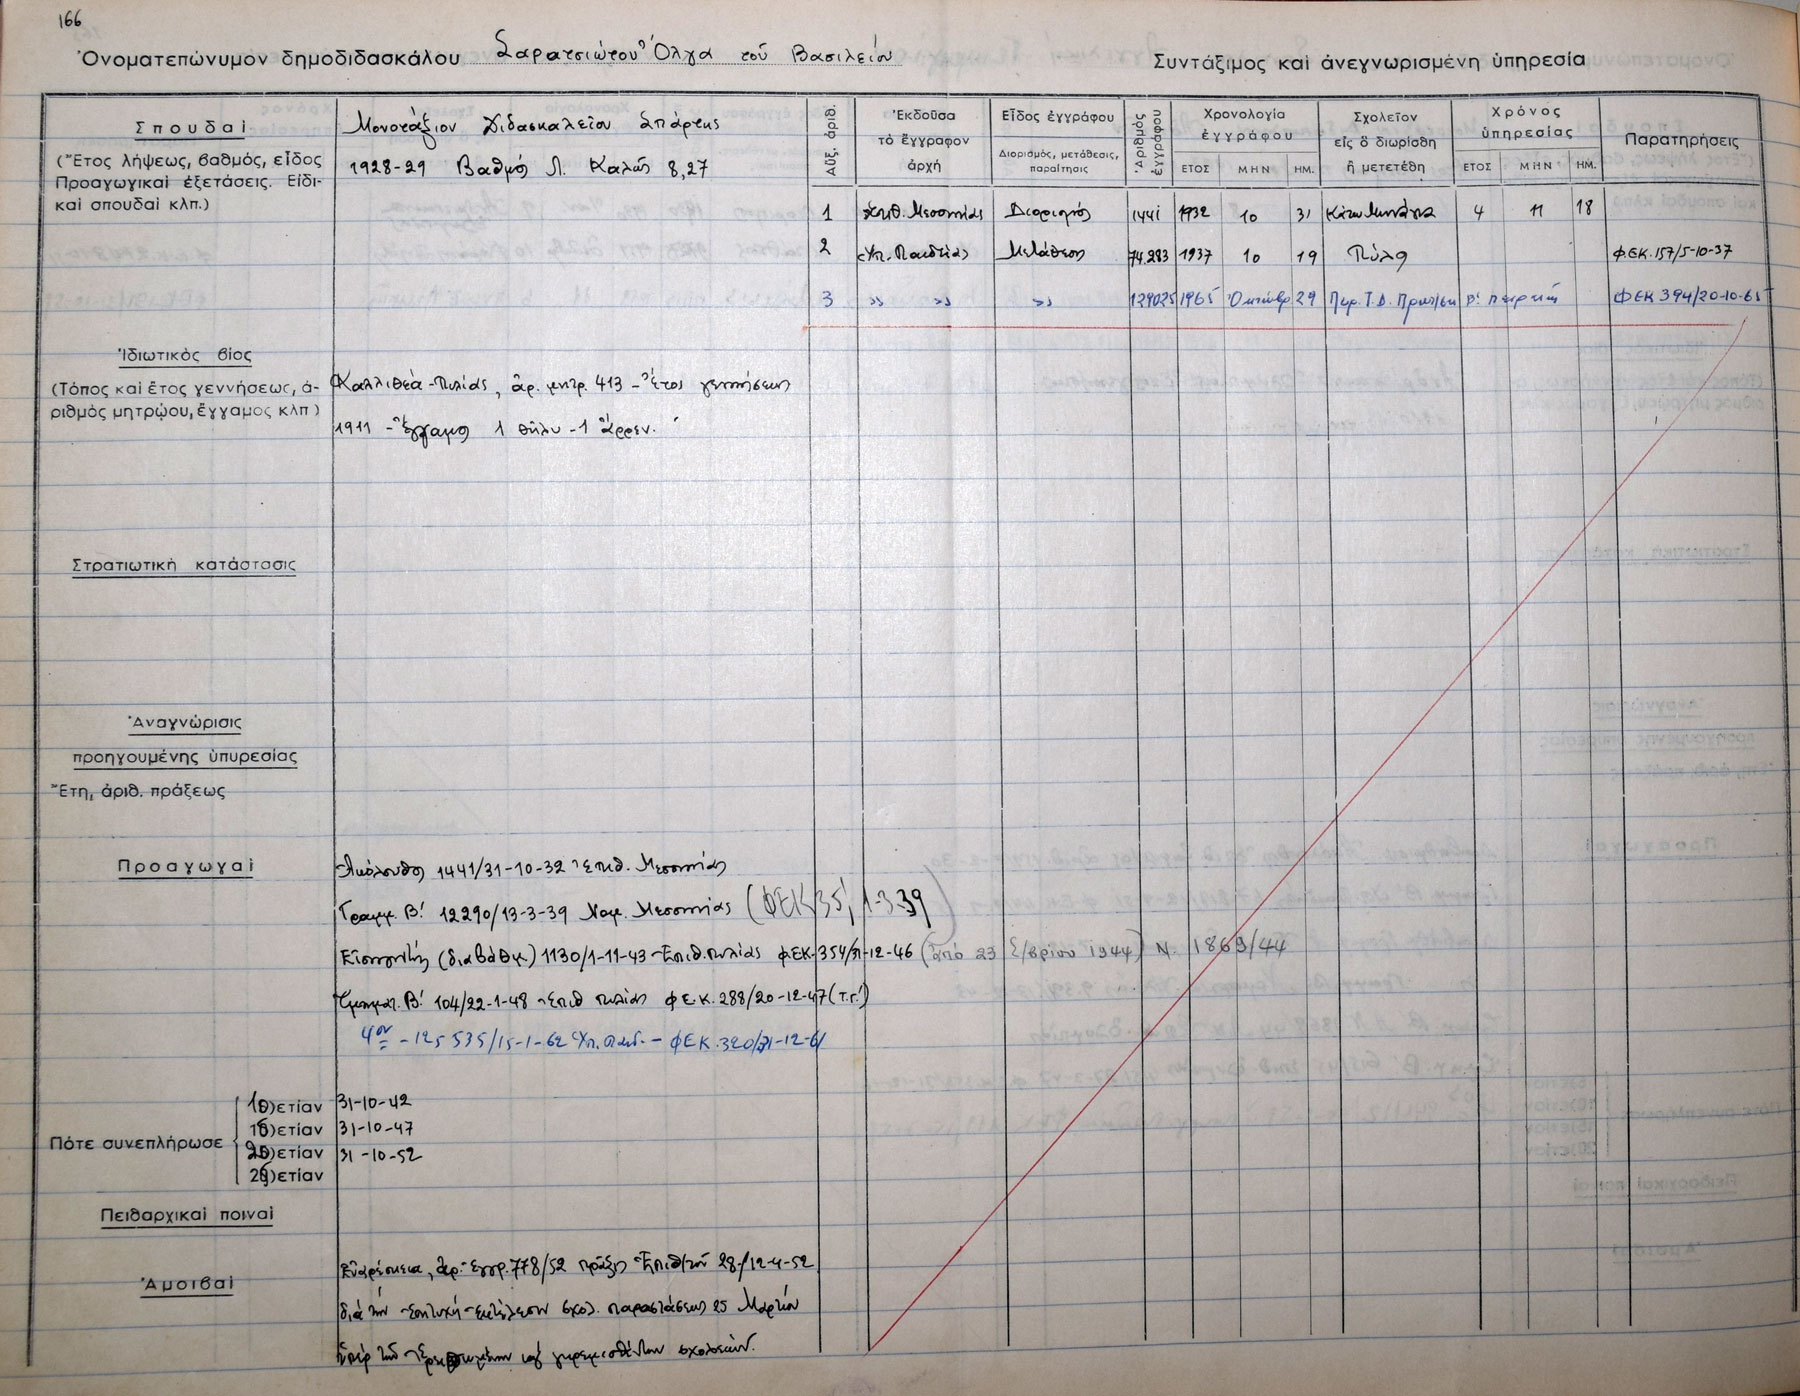 166
Ὀνοματεπώνυμον δημοδιδασκάλου Σαρατσιώτου Ὄλγα τοῦ Βασιλείου
Συντάξιμος καὶ ἀνεγνωρισμένη ὑπηρεσία
Σπουδαὶ
(Ἔτος λήψεως, βαθμός, εἶδος
Προαγωγικαὶ ἐξετάσεις. Εἰδι-
καὶ σπουδαὶ κλπ.)
Μονοτάξιον Διδασκαλεῖον Σπάρτης
1928-29 Βαθμός Λ. Καλῶς 8,27
Αὔξ. ἀριθ.
Ἐκδοῦσα
τὸ ἔγγραφον
ἀρχὴ
Εἶδος ἐγγράφου
Διορισμός, μετάθεσις,
παραίτησις
Ἀριθμὸς
ἐγγράφου
Χρονολογία
ἐγγράφου
ΕΤΟΣ ΜΗΝ ΗΜ.
Σχολεῖον
εἰς ὃ διωρίσθη
ἢ μετετέθη
Χρόνος
ὑπηρεσίας
ΕΤΟΣ ΜΗΝ ΗΜ.
Παρατηρήσεις
1 Ἐπιθ. Μεσσηνίας Διορισμός 1441 1932 10 31 Κάτω Μινάγια 4 11 18
2 Ὑπ. Παιδείας Μετάθεση 74.283 1937 10 19 Πύλα ΦΕΚ.157/5-10-37
3 » » » 129025 1965 Ὀκτώβρ 29 Β' ΦΕΚ 394/20-10-65
Ἰδιωτικὸς βίος
(Τόπος καὶ ἔτος γεννήσεως, ἀ-
ριθμὸς μητρῴου, ἔγγαμος κλπ)
Καλλιθέα-Πυλίας, ἀρ. μητρ. 413 - Ἔτος γεννήσεως
1911 - Ἔγγαμος 1 θῆλυ - 1 ἄρρεν.
Στρατιωτικὴ κατάστασις
Ἀναγνώρισις
προηγουμένης ὑπυρεσίας
Ἔτη, ἀριθ. πράξεως
Προαγωγαὶ
Ἀκόλουθος 1441/31-10-32 Ἐπιθ. Μεσσηνίας
Γραμμ. Β' 12290/13-3-39 Νομ. Μεσσηνίας (ΦΕΚ 35, 1-3-39)
Εἰσηγητής (διαβάθμ.) 1130/1-11-43 Ἐπιθ. Πυλίας ΦΕΚ.354/31-12-46 (ἀπό 23 Σ/βρίου 1944) Ν. 1869/44
Τμηματ. Β' 104/22-1-48 Ἐπιθ Πυλίας Φ.Ε.Κ. 288/20-12-47 (τ.Γ')
4ον - 125535/15-1-62 Ὑπ. Παιδ. - ΦΕΚ.320/31-12-61
Πότε συνεπλήρωσε
10)ετίαν 31-10-42
15)ετίαν 31-10-47
20)ετίαν 31-10-52
25)ετίαν
Πειθαρχικαὶ ποιναὶ
Ἀμοιβαὶ
Εὐαρέσκεια, ἀρ. ἐγγρ. 778/52 πρᾶξις Ἐπιθ/τοῦ 28/12-4-52
διὰ τὴν ἐπιτυχῆ ἐκτέλεσιν σχολ. παραστάσεως 25 Μαρτίου
ὑπὲρ τῶν σχολείων.